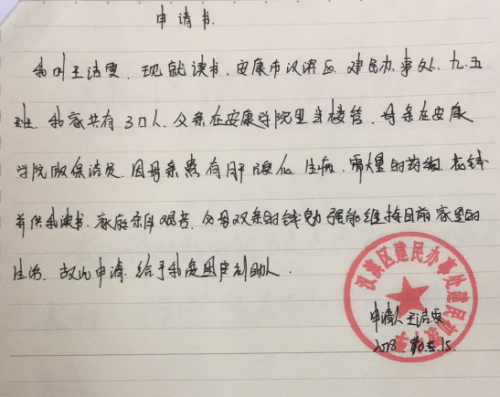 申请书
我叫王洁雯，现就读书，安康市汉滨区建民办事处，九.五
班，我家共有3口人，父亲在安康学院里当楼管，母亲在安康
学院做保洁员，因母亲患有，需大量的药物，花钱
并供我读书，家庭条件艰苦，父母双亲的钱勉强能维持目前家里的
生活，故此申请，给予我助人.
汉滨区建民办事处建民
申请人王洁雯